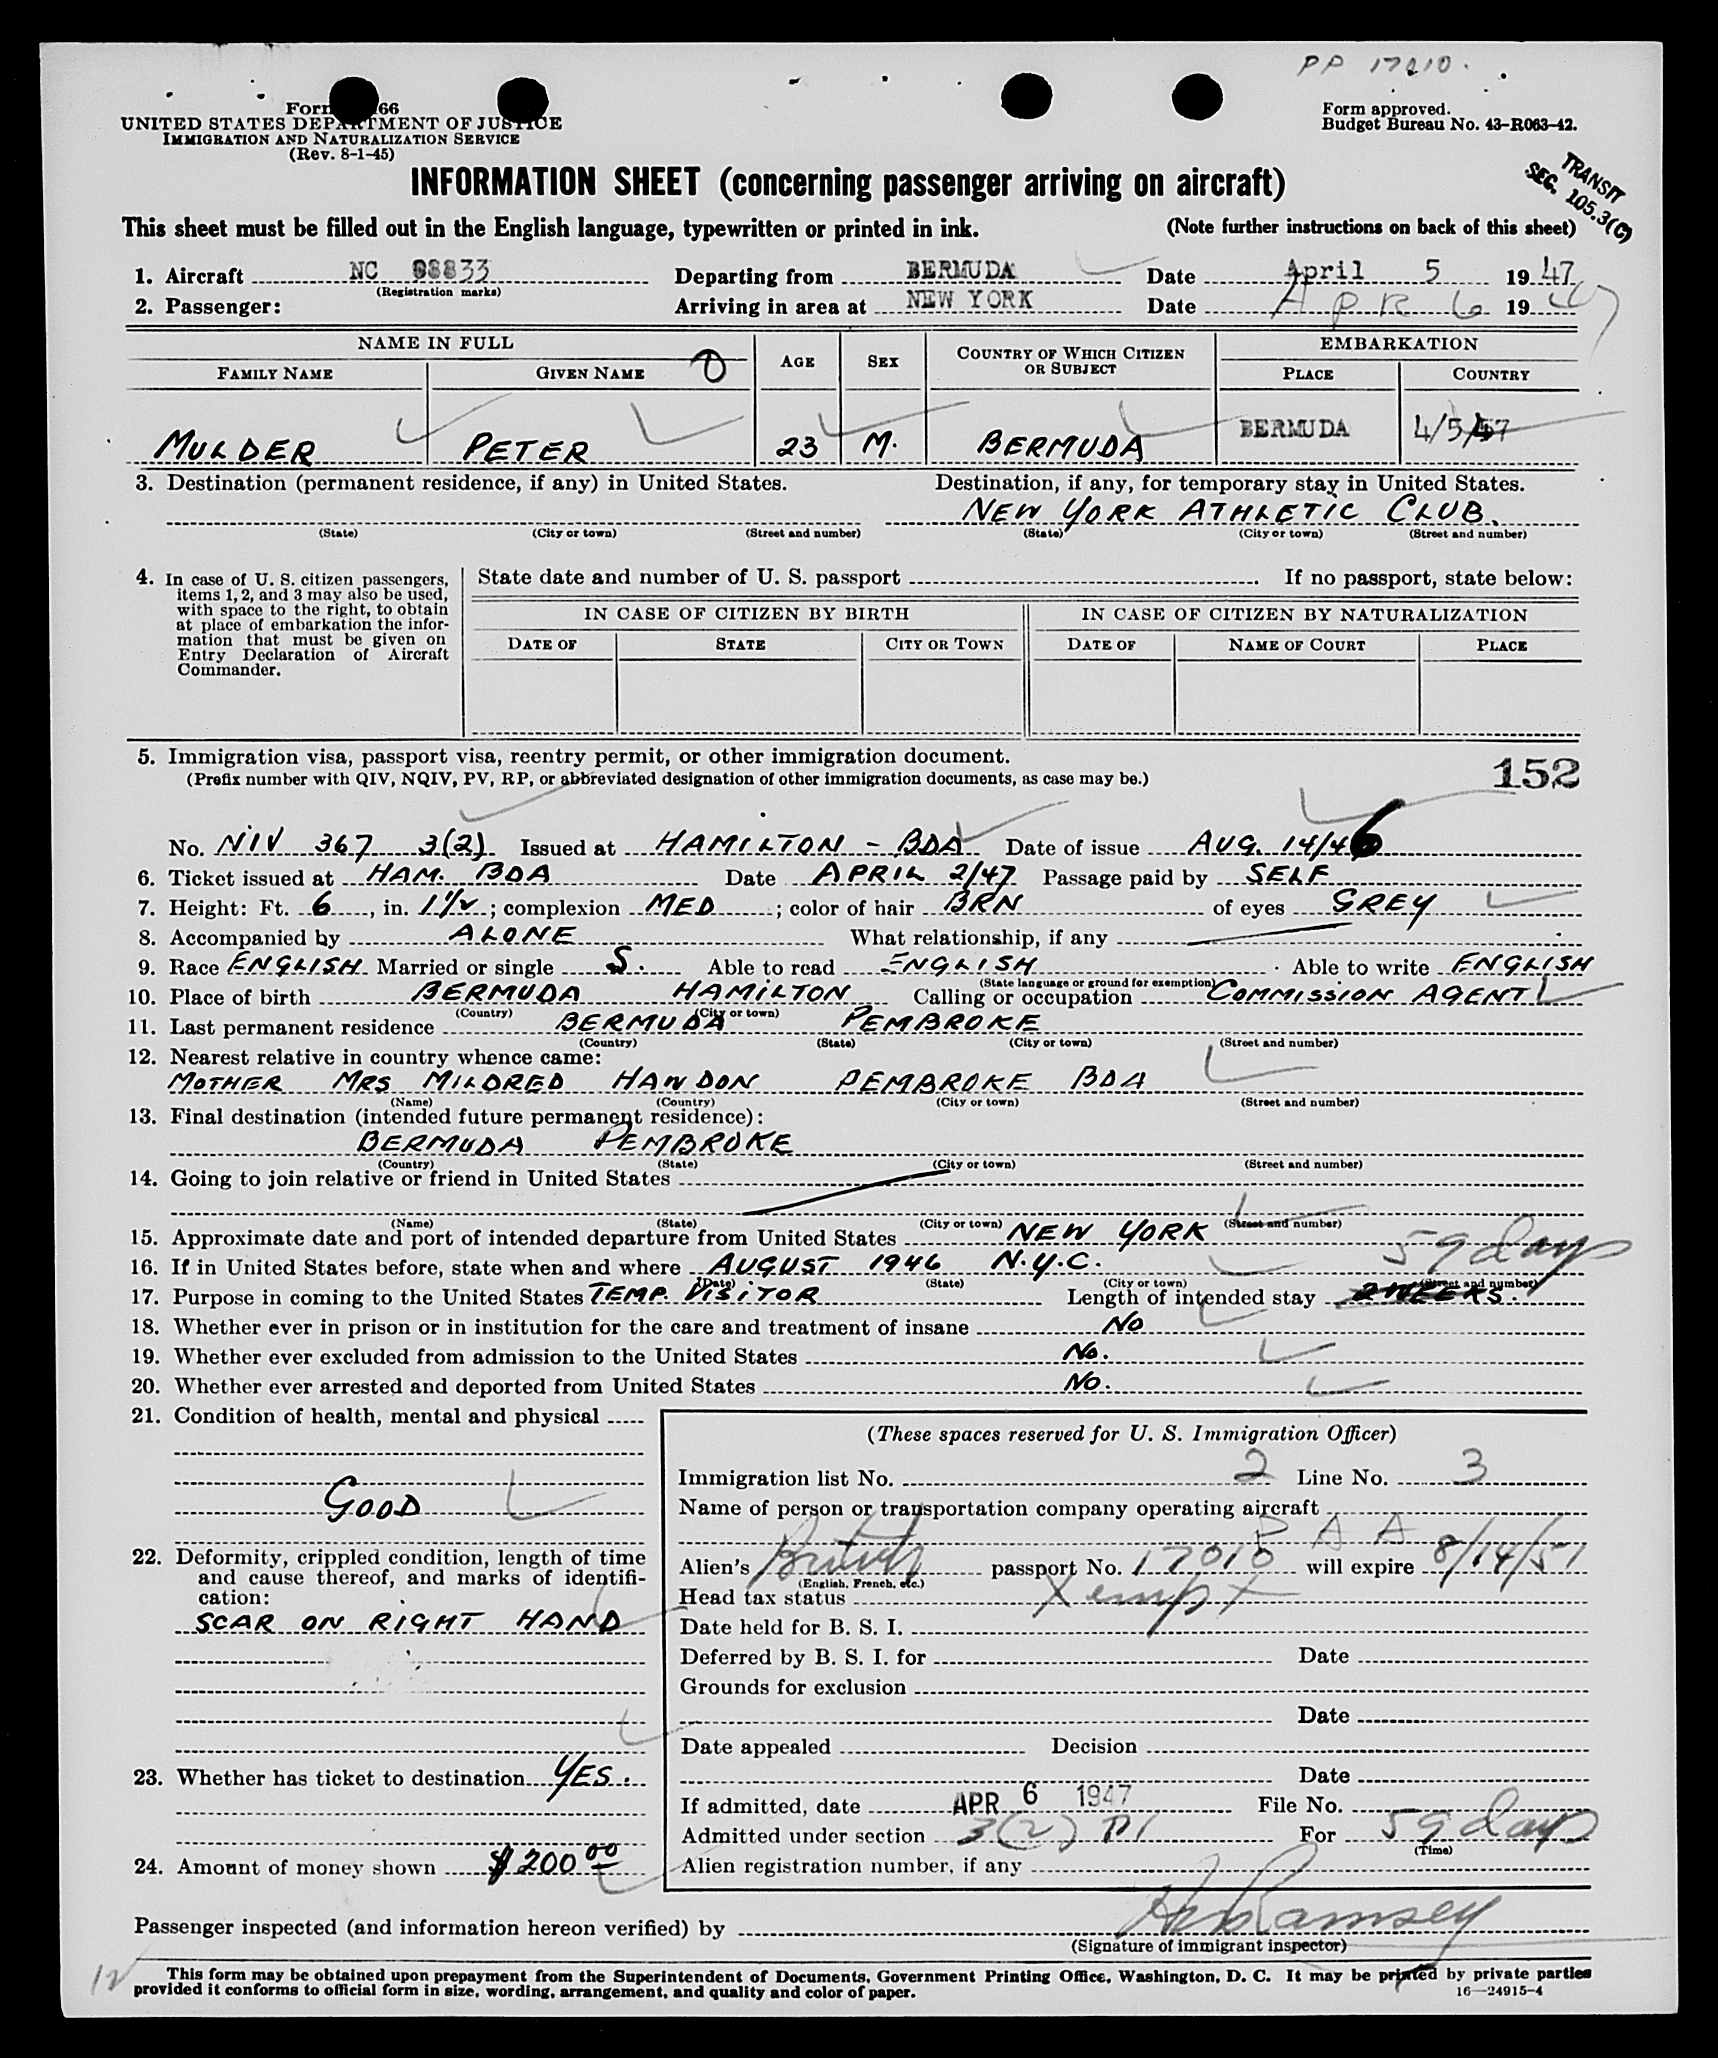 PP 17010.
Form 66
UNITED STATES DEPARTMENT OF JUSTICE
IMMIGRATION AND NATURALIZATION SERVICE
(Rev. 8-1-45)
Form approved.
Budget Bureau No. 43-R063-42.
TRANSIT
SEC. 105.3(C)
INFORMATION SHEET (concerning passenger arriving on aircraft)
This sheet must be filled out in the English language, typewritten or printed in ink. (Note further instructions on back of this sheet)
1. Aircraft NC 88833 Departing from BERMUDA Date April 5 1947
(Registration marks)
2. Passenger: Arriving in area at NEW YORK Date APR 6 1947
NAME IN FULL AGE SEX COUNTRY OF WHICH CITIZEN OR SUBJECT EMBARKATION
FAMILY NAME GIVEN NAME PLACE COUNTRY
MULDER PETER 23 M. BERMUDA BERMUDA 4/5/47
3. Destination (permanent residence, if any) in United States. Destination, if any, for temporary stay in United States.
NEW YORK ATHLETIC CLUB.
(State) (City or town) (Street and number) (State) (City or town) (Street and number)
4. In case of U. S. citizen passengers, items 1, 2, and 3 may also be used, with space to the right, to obtain at place of embarkation the information that must be given on Entry Declaration of Aircraft Commander.
State date and number of U. S. passport If no passport, state below:
IN CASE OF CITIZEN BY BIRTH IN CASE OF CITIZEN BY NATURALIZATION
DATE OF STATE CITY OR TOWN DATE OF NAME OF COURT PLACE
5. Immigration visa, passport visa, reentry permit, or other immigration document.
(Prefix number with QIV, NQIV, PV, RP, or abbreviated designation of other immigration documents, as case may be.)
152
No. NIV 367 3(2) Issued at HAMILTON - BDA Date of issue AUG. 14/46
6. Ticket issued at HAM. BDA Date APRIL 2/47 Passage paid by SELF
7. Height: Ft. 6, in. 1 1/2; complexion MED; color of hair BRN of eyes GREY
8. Accompanied by ALONE What relationship, if any
9. Race ENGLISH Married or single S. Able to read ENGLISH Able to write ENGLISH
(State language or ground for exemption)
10. Place of birth BERMUDA HAMILTON Calling or occupation COMMISSION AGENT
(Country) (City or town)
11. Last permanent residence BERMUDA PEMBROKE
(Country) (State) (City or town) (Street and number)
12. Nearest relative in country whence came:
MOTHER MRS MILDRED HAWDON PEMBROKE BDA
(Name) (Country) (City or town) (Street and number)
13. Final destination (intended future permanent residence):
BERMUDA PEMBROKE
(Country) (State) (City or town) (Street and number)
14. Going to join relative or friend in United States
(Name) (State) (City or town) (Street and number)
15. Approximate date and port of intended departure from United States NEW YORK
59 days
16. If in United States before, state when and where AUGUST 1946 N.Y.C.
(Date) (State) (City or town) (Street and number)
17. Purpose in coming to the United States TEMP. VISITOR Length of intended stay 2 WEEKS.
18. Whether ever in prison or in institution for the care and treatment of insane NO
19. Whether ever excluded from admission to the United States NO.
20. Whether ever arrested and deported from United States NO.
21. Condition of health, mental and physical
GOOD
22. Deformity, crippled condition, length of time and cause thereof, and marks of identification:
SCAR ON RIGHT HAND
23. Whether has ticket to destination YES.
24. Amount of money shown $200 00
(These spaces reserved for U. S. Immigration Officer)
Immigration list No. 2 Line No. 3
Name of person or transportation company operating aircraft
P A A
Alien's British passport No. 17010 will expire 8/14/51
(English, French, etc.)
Head tax status Xempt
Date held for B. S. I.
Deferred by B. S. I. for Date
Grounds for exclusion
Date
Date appealed Decision
Date
If admitted, date APR 6 1947 File No.
Admitted under section 3(2) P1 For 59 days
(Time)
Alien registration number, if any
Passenger inspected (and information hereon verified) by Ramsey
(Signature of immigrant inspector)
12
This form may be obtained upon prepayment from the Superintendent of Documents, Government Printing Office, Washington, D. C. It may be printed by private parties
provided it conforms to official form in size, wording, arrangement, and quality and color of paper.
16—24915-4